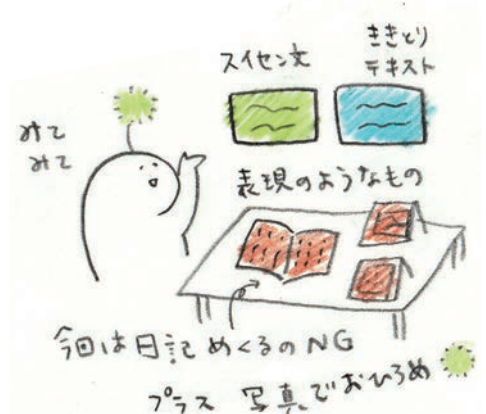 スイセン文
ききとり
テキスト
みて
みて
表現のようなもの
今回は日記めくるのNG
プラス 写真でおひろめ